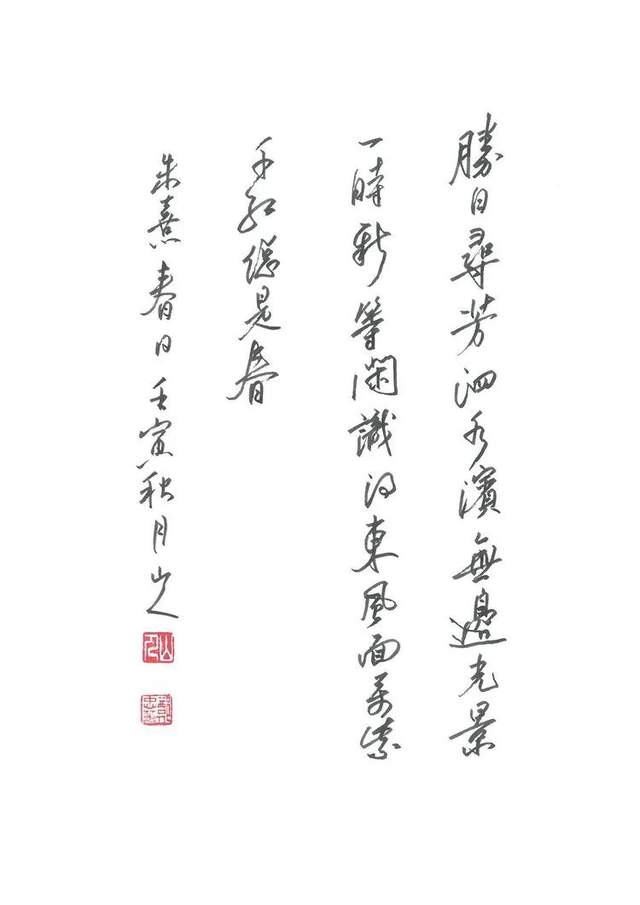 勝日尋芳泗水濱無邊光景
一時新等閑識得東風面萬紫
千紅總是春
朱熹春日壬寅秋月山人
山人